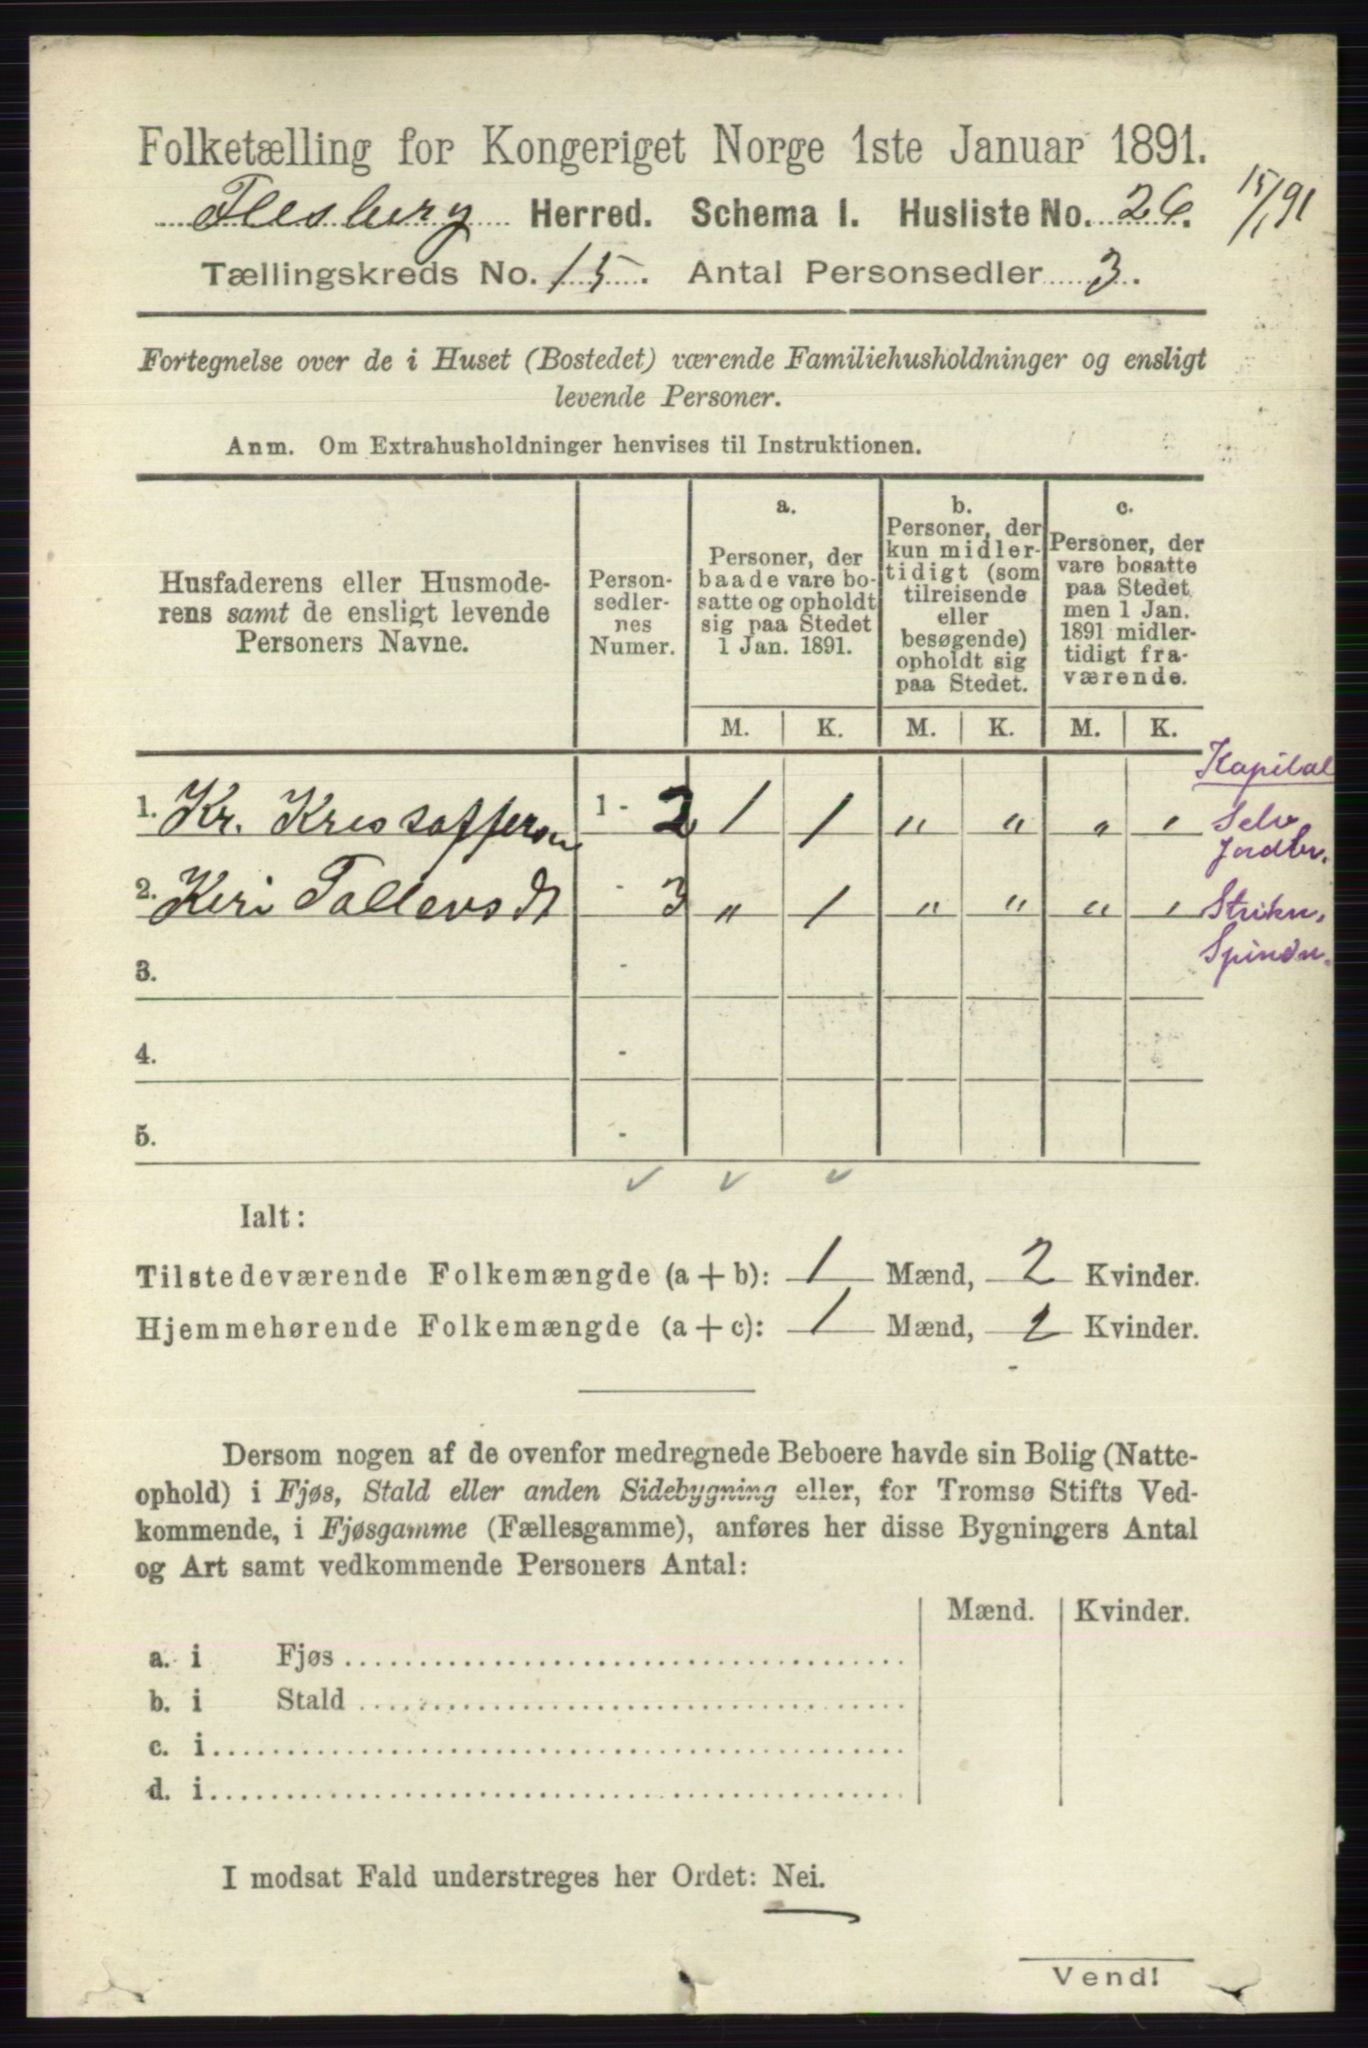 Folketælling for Kongeriget Norge 1ste Januar 1891.
Flesberg Herred. Schema I. Husliste No. 26. 15/1 91
Tællingskreds No. 15. Antal Personsedler 3.
Fortegnelse over de i Huset (Bostedet) værende Familiehusholdninger og ensligt
levende Personer.
Anm. Om Extrahusholdninger henvises til Instruktionen.
Husfaderens eller Husmode-
rens samt de ensligt levende
Personers Navne.
Person-
sedler-
nes
Numer.
a.
Personer, der
baade vare bo-
satte og opholdt
sig paa Stedet
1 Jan. 1891.
b.
Personer, der
kun midler-
tidigt (som
tilreisende
eller
besøgende)
opholdt sig
paa Stedet.
c.
Personer, der
vare bosatte
paa Stedet
men 1 Jan.
1891 midler-
tidigt fra-
værende.
M. K. M. K. M. K.
Kapital
1. Kr. Kristoffersen 1 - 2 1 1 " " " " Selv
Jordbr.
2. Kiri Tollevsdt - 3 " 1 " " " " Strikn.
Spindn.
3. -
4. -
5. -
Ialt:
Tilstedeværende Folkemængde (a + b): 1 Mænd, 2 Kvinder.
Hjemmehørende Folkemængde (a + c): 1 Mænd, 2 Kvinder.
Dersom nogen af de ovenfor medregnede Beboere havde sin Bolig (Natte-
ophold) i Fjøs, Stald eller anden Sidebygning eller, for Tromsø Stifts Ved-
kommende, i Fjøsgamme (Fællesgamme), anføres her disse Bygningers Antal
og Art samt vedkommende Personers Antal:
Mænd. Kvinder.
a. i Fjøs
b. i Stald
c. i
d. i
I modsat Fald understreges her Ordet: Nei.
Vend!